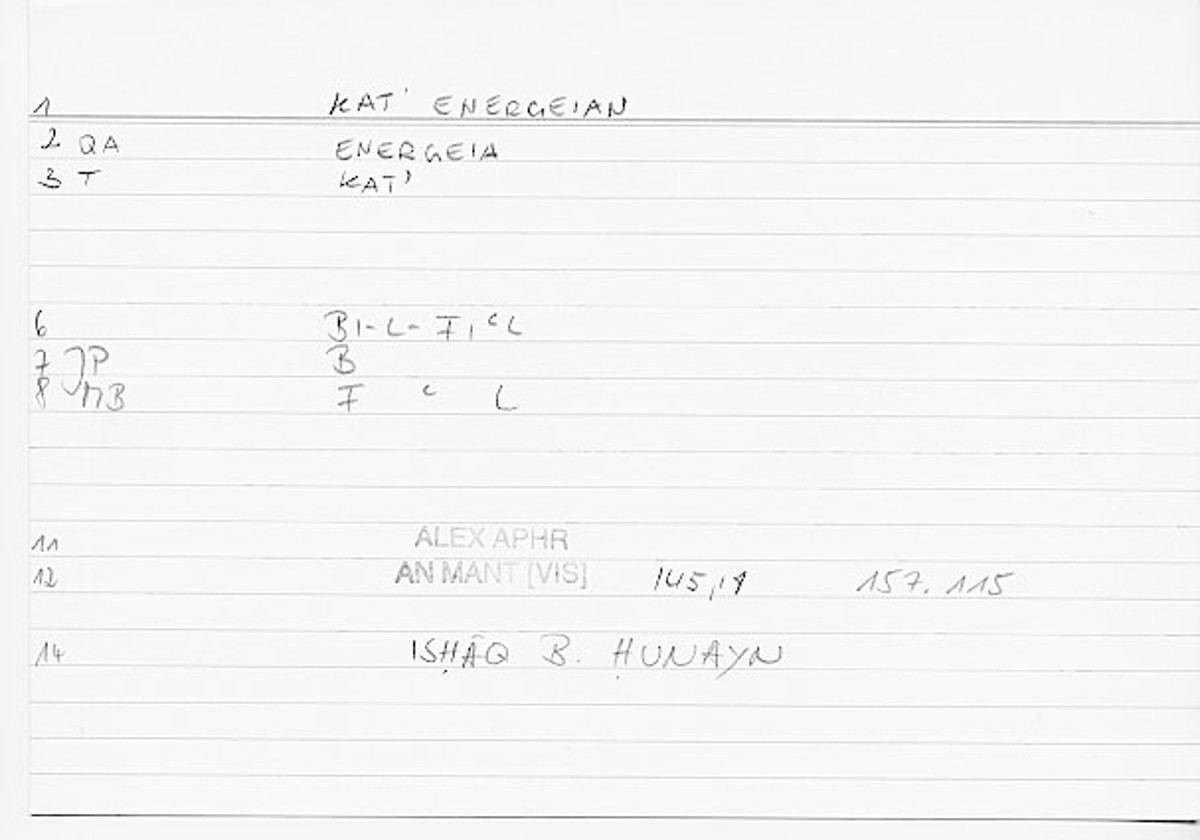 1 KAT' ENERGEIAN
2 QA ENERGEIA
3 T KAT'
6 BI-L-FIʿL
7 JP B
8 MB F ʿ L
11 ALEX APHR
12 AN MANT [VIS] 145,11 157.115
14 ISḤĀQ B. ḤUNAYN